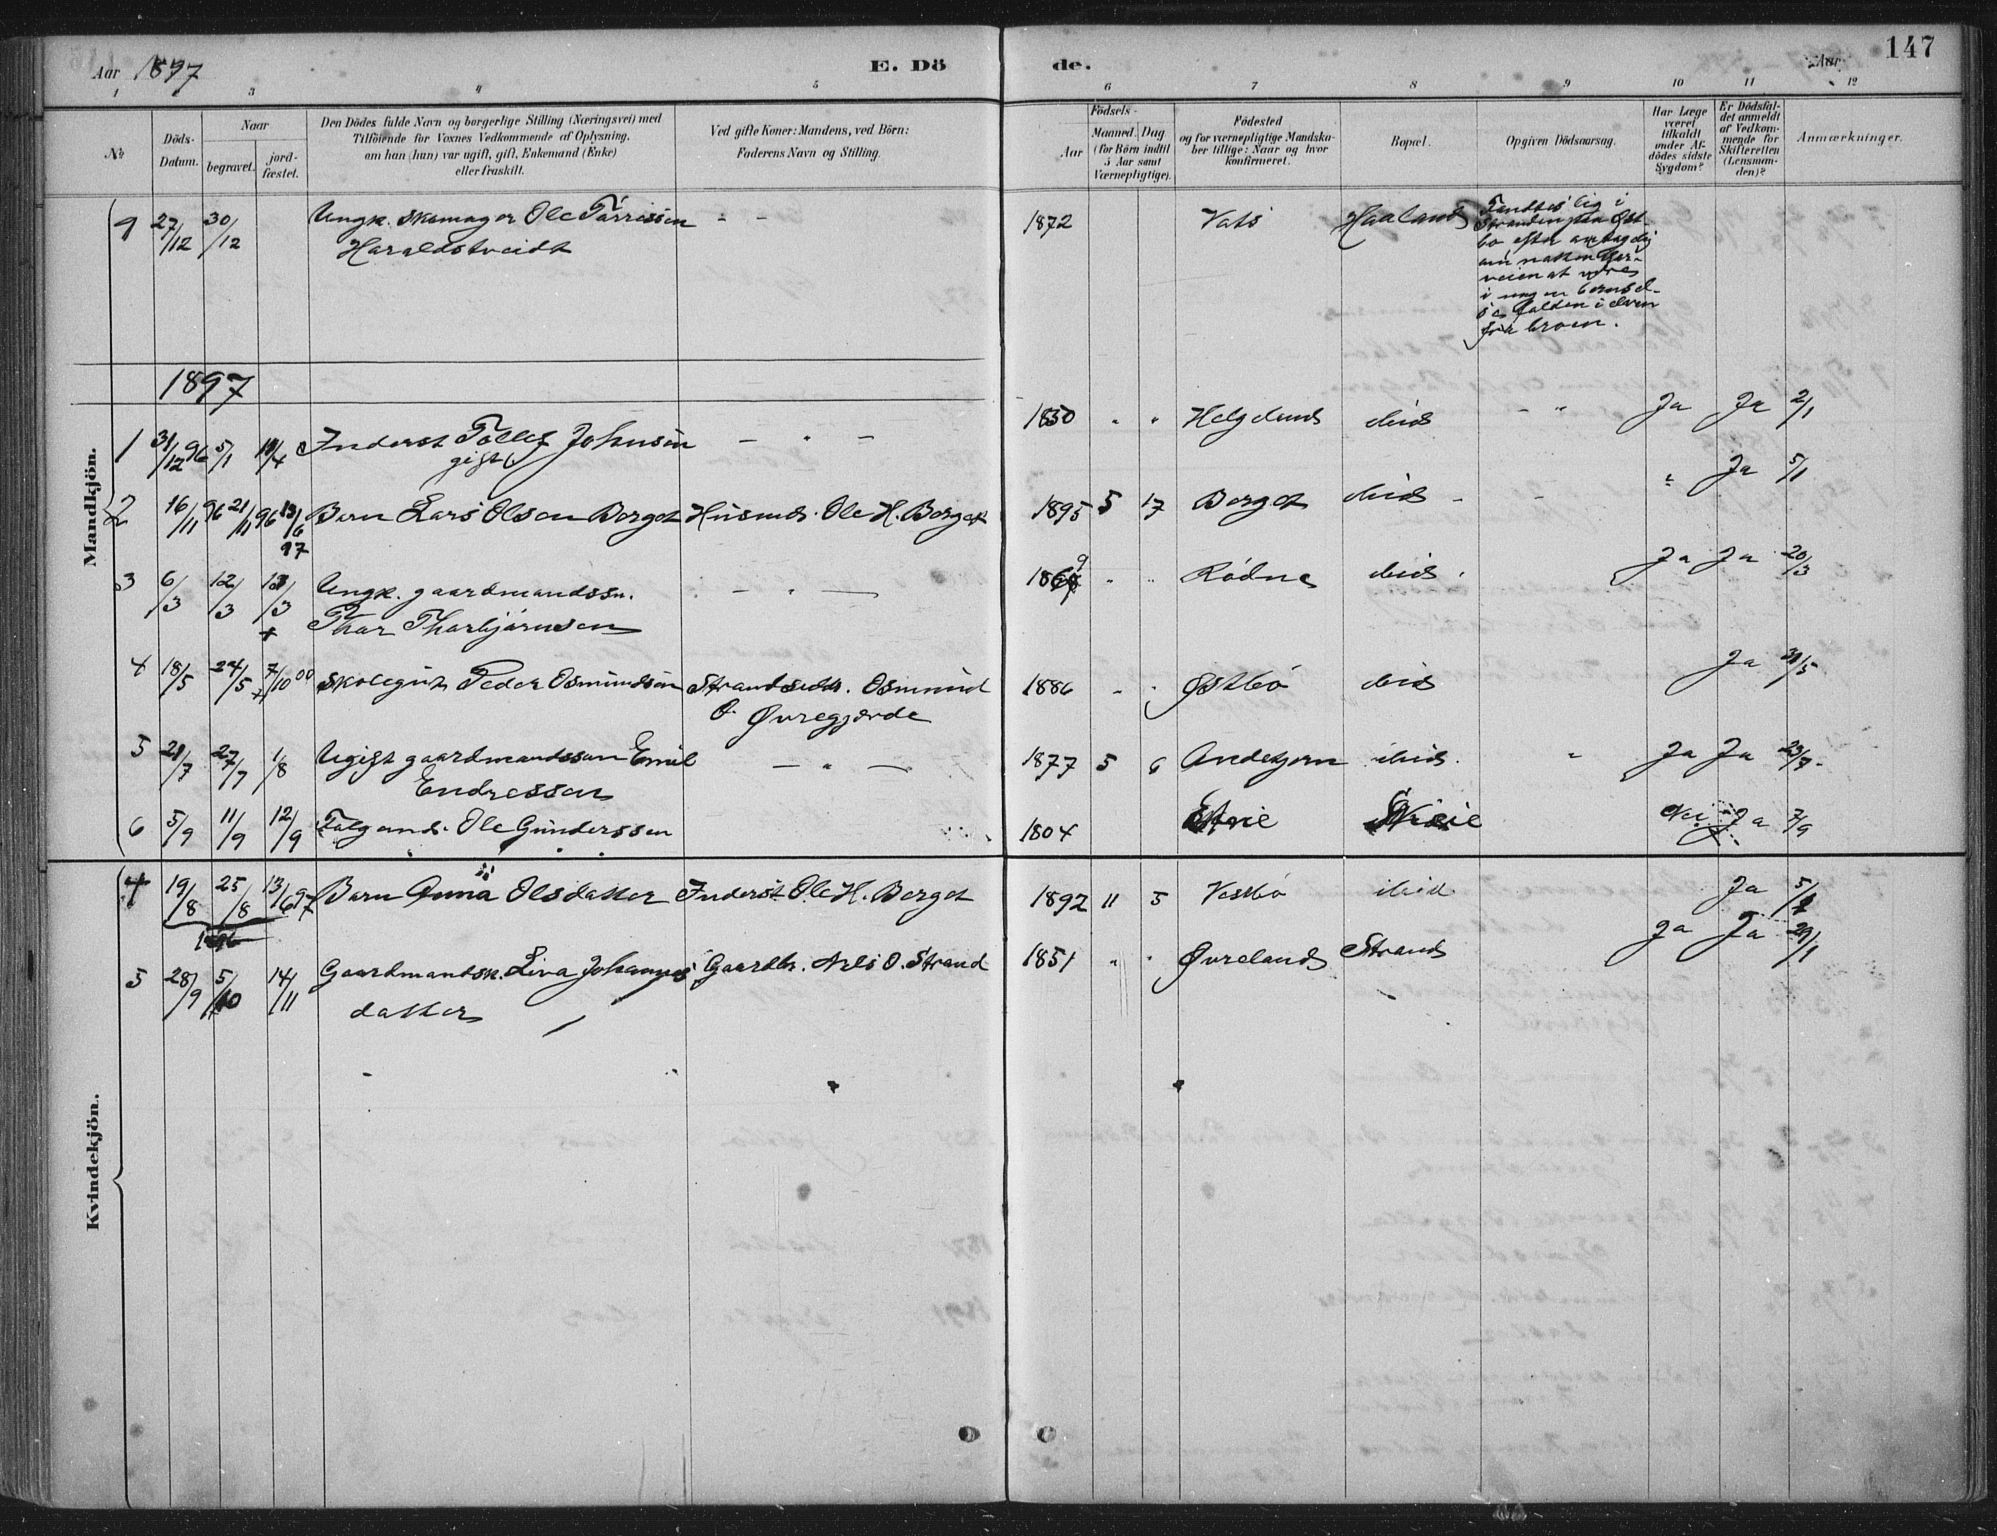 Aar 1897
E. Dö
de.
Aar
147
1 2 3 4 5 6 7 8 9 10 11 12
No
Döds-Datum.
Naar
begravet.
jord-fæstet.
Den Dödes fulde Navn og borgerlige Stilling (Næringsvei) med
Tilföiende for Voxnes Vedkommende af Oplysning,
om han (hun) var ugift, gift, Enkemand (Enke)
eller fraskilt.
Ved gifte Koner: Mandens, ved Börn:
Faderens Navn og Stilling.
Födsels-
Aar
Maaned. Dag
(for Börn indtil
5 Aar samt
Værnepligtige).
Födested
og for værnepligtige Mandska-
ber tillige: Naar og hvor
konfirmeret.
Bopæl.
Opgiven Dödsaarsag.
Har Læge
været
tilkaldt
under Af-
dödes sidste
Sygdom?
Er Dödsfal-
det anmeldt
af Vedkom-
mende for
Skifteretten
(Lensman-
den)?
Anmærkninger.
Mandkjön.
9 27/12 30/12 Ungk. skomager Ole Tørrissen - - 1872 Vats Haaland
Haraldstveidt
Fandtes lig i
Stranden paa Øst-
bo efter
i elven
fra broen.
1897
1 31/12 96 5/1 11/4 Inderst Tollef Johnsen - " - 1830 " " Helgelund ibid - " Ja Ja 2/1
gift
2 16/11 96 21/11 96 13/6 97 Barn Lars Olsen Berget Husmd. Ole H. Berget 1895 5 17 Berget ibid - - " Ja 5/1
3 6/3 12/3 13/3 Ungk. gaardmandssn. - " - 1869 " " Rødne ibid. Ja Ja 20/3
+ Thor Thorbjørnsen
4 18/5 24/5 7/10 00 Skolegut Peder Osmundsen Strandsidder. Osmund 1886 - " Østbø ibid Ja 31/5
O. Øvregjerde
5 21/7 27/7 1/8 Ugift gaardmandssøn Emil - " - 1877 5 6 ibid. " Ja Ja 23/7
Endressen
6 5/9 11/9 12/9 Folgemd. Ole Gunderssen 1804 Nei Ja 7/9
Kvindekjön.
4 19/8 25/8 13/6 97 Barn Anna Olsdatter Inderst Ole H. Berget 1892 11 5 Vestbø ibid. Ja 5/1
1896
5 28/9 5/10 14/11 Gaardmandsk. Liva Johannes Gaardbr. Nels O. Strand 1851 " " Øvreland Strand Ja Ja 29/1
datter